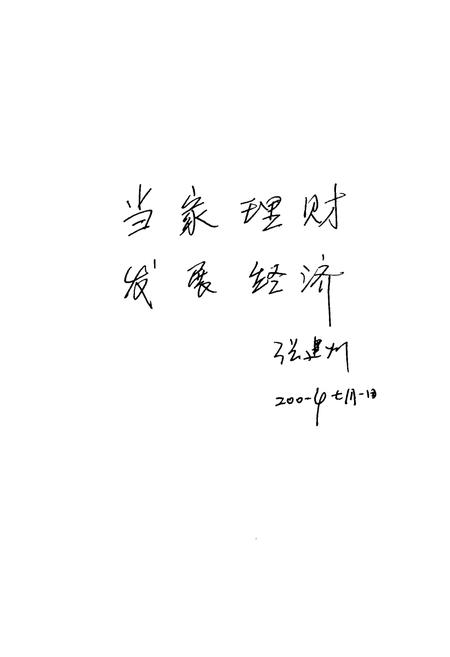 当家理财
发展经济
张建州
200-4七月一日